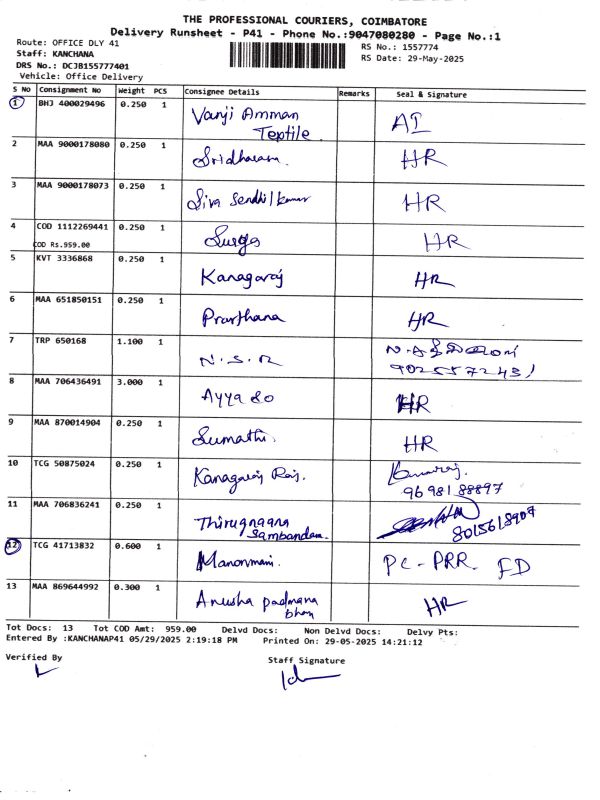 THE PROFESSIONAL COURIERS, COIMBATORE
Delivery Runsheet - P41 - Phone No.:9047080280 - Page No.:1
Route: OFFICE DLY 41
Staff: KANCHANA
DRS No.: DCJB155777401
Vehicle: Office Delivery
RS No.: 1557774
RS Date: 29-May-2025
S No Consignment No Weight PCS Consignee Details Remarks Seal & Signature
1 BHJ 400029496 0.250 1 Vanji Amman AI
Textile
2 MAA 9000178080 0.250 1 Sridharan. HR
3 MAA 9000178073 0.250 1 Siva Sendhilkumar HR
4 COD 1112269441 0.250 1 Surya HR
COD Rs.959.00
5 KVT 3336868 0.250 1 Kanagaraj HR
6 MAA 651850151 0.250 1 Prarthana HR
7 TRP 650168 1.100 1 N.S.R
8 MAA 706436491 3.000 1 Ayya so HR
9 MAA 870014904 0.250 1 Sumathi. HR
10 TCG 50875024 0.250 1 Kanagaraj Raj.
96981 88897
11 MAA 706836241 0.250 1 Thirugnaana
Sambandam 8015618907
12 TCG 41713832 0.600 1 Manonmani. PC - PRR. FD
13 MAA 869644992 0.300 1 Anusha padmana HR
bhan
Tot Docs: 13 Tot COD Amt: 959.00 Delvd Docs: Non Delvd Docs: Delvy Pts:
Entered By :KANCHANAP41 05/29/2025 2:19:18 PM Printed On: 29-05-2025 14:21:12
Verified By
Staff Signature